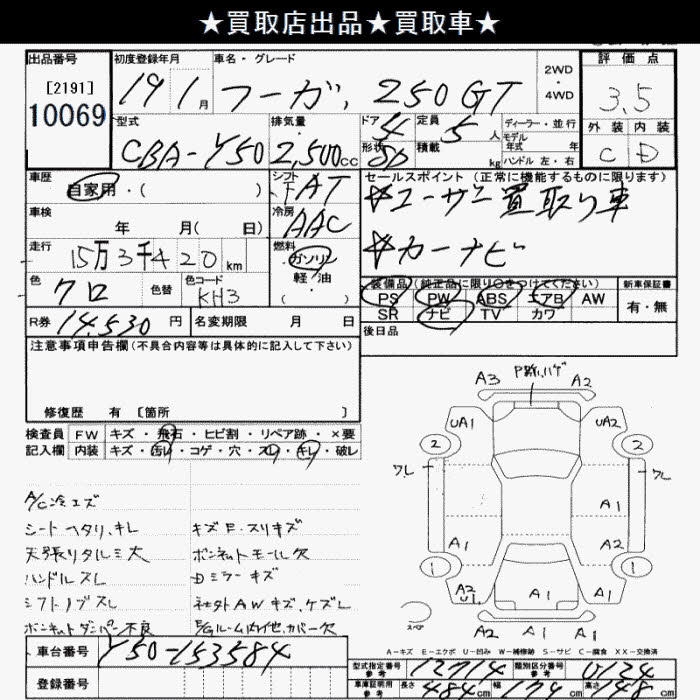 ★買取店出品★買取車★
出品番号
[2191]
10069
初度登録年月
19 1 月
車名・グレード
フーガ, 250 GT
2WD
4WD
評価点
3.5
外装 内装
C D
型式
CBA-Y50
排気量
2,500cc
ドア 4
形状
定員 5 人
積載 kg
ディーラー・並行
モデル
年式 年
ハンドル 左・右
車歴
自家用・( )
シフト
FAT
セールスポイント (正常に機能するものに限ります)
ユーザー買取り車
カーナビ
車検
年 月( 日)
冷房
AAC
走行
15万3千420km
燃料
ガソリン
軽・油
( )
色
クロ
色替
色コード
KH3
装備品(純正品に限り○をつけてください)
PS PW ABS エアB AW
SR ナビ TV カワ
新車保証書
有・無
R券 14,530 円
名変期限 月 日
後日品
注意事項申告欄(不具合内容等は具体的に記入して下さい)
修復歴 有 [箇所 ]
検査員 FW キズ・飛石・ヒビ割・リペア跡・×要
記入欄 内装 キズ・汚レ・コゲ・穴・スレ・キレ・破レ
A/C冷エズ
シートヘタリ、キレ
天張リタルミ大
ハンドルスレ
シフトノブスレ
ボンネットダンパー不良
キズE・スリキズ
ボンネットモール欠
Dミラーキズ
社外AWキズ、ケズレ
E/Gルーム内他、カバー欠
P跡、ハゲ
A3 A2
UA1 UA2
2 2
ワレ ワレ
A1
A1 A1
1 1
A2 U1 A1 A1 A2
スペア
A2 A1 A1
A-キズ E-エクボ U-凹み W-補修跡 S-サビ C-腐食 XX-交換済
車台番号 Y50-153584
登録番号
型式指定番号 参考 12714
類別区分番号 参考 0124
車庫証明用 参考 長さ 484cm 幅 179cm 高さ 148cm